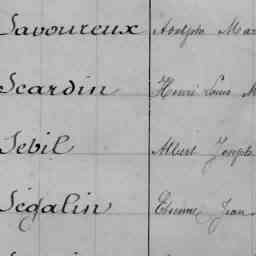 Savoureux Adolphe Mar
Scardin Henri Louis M
Sebil Albert Joseph
Ségalin Etienne Jean